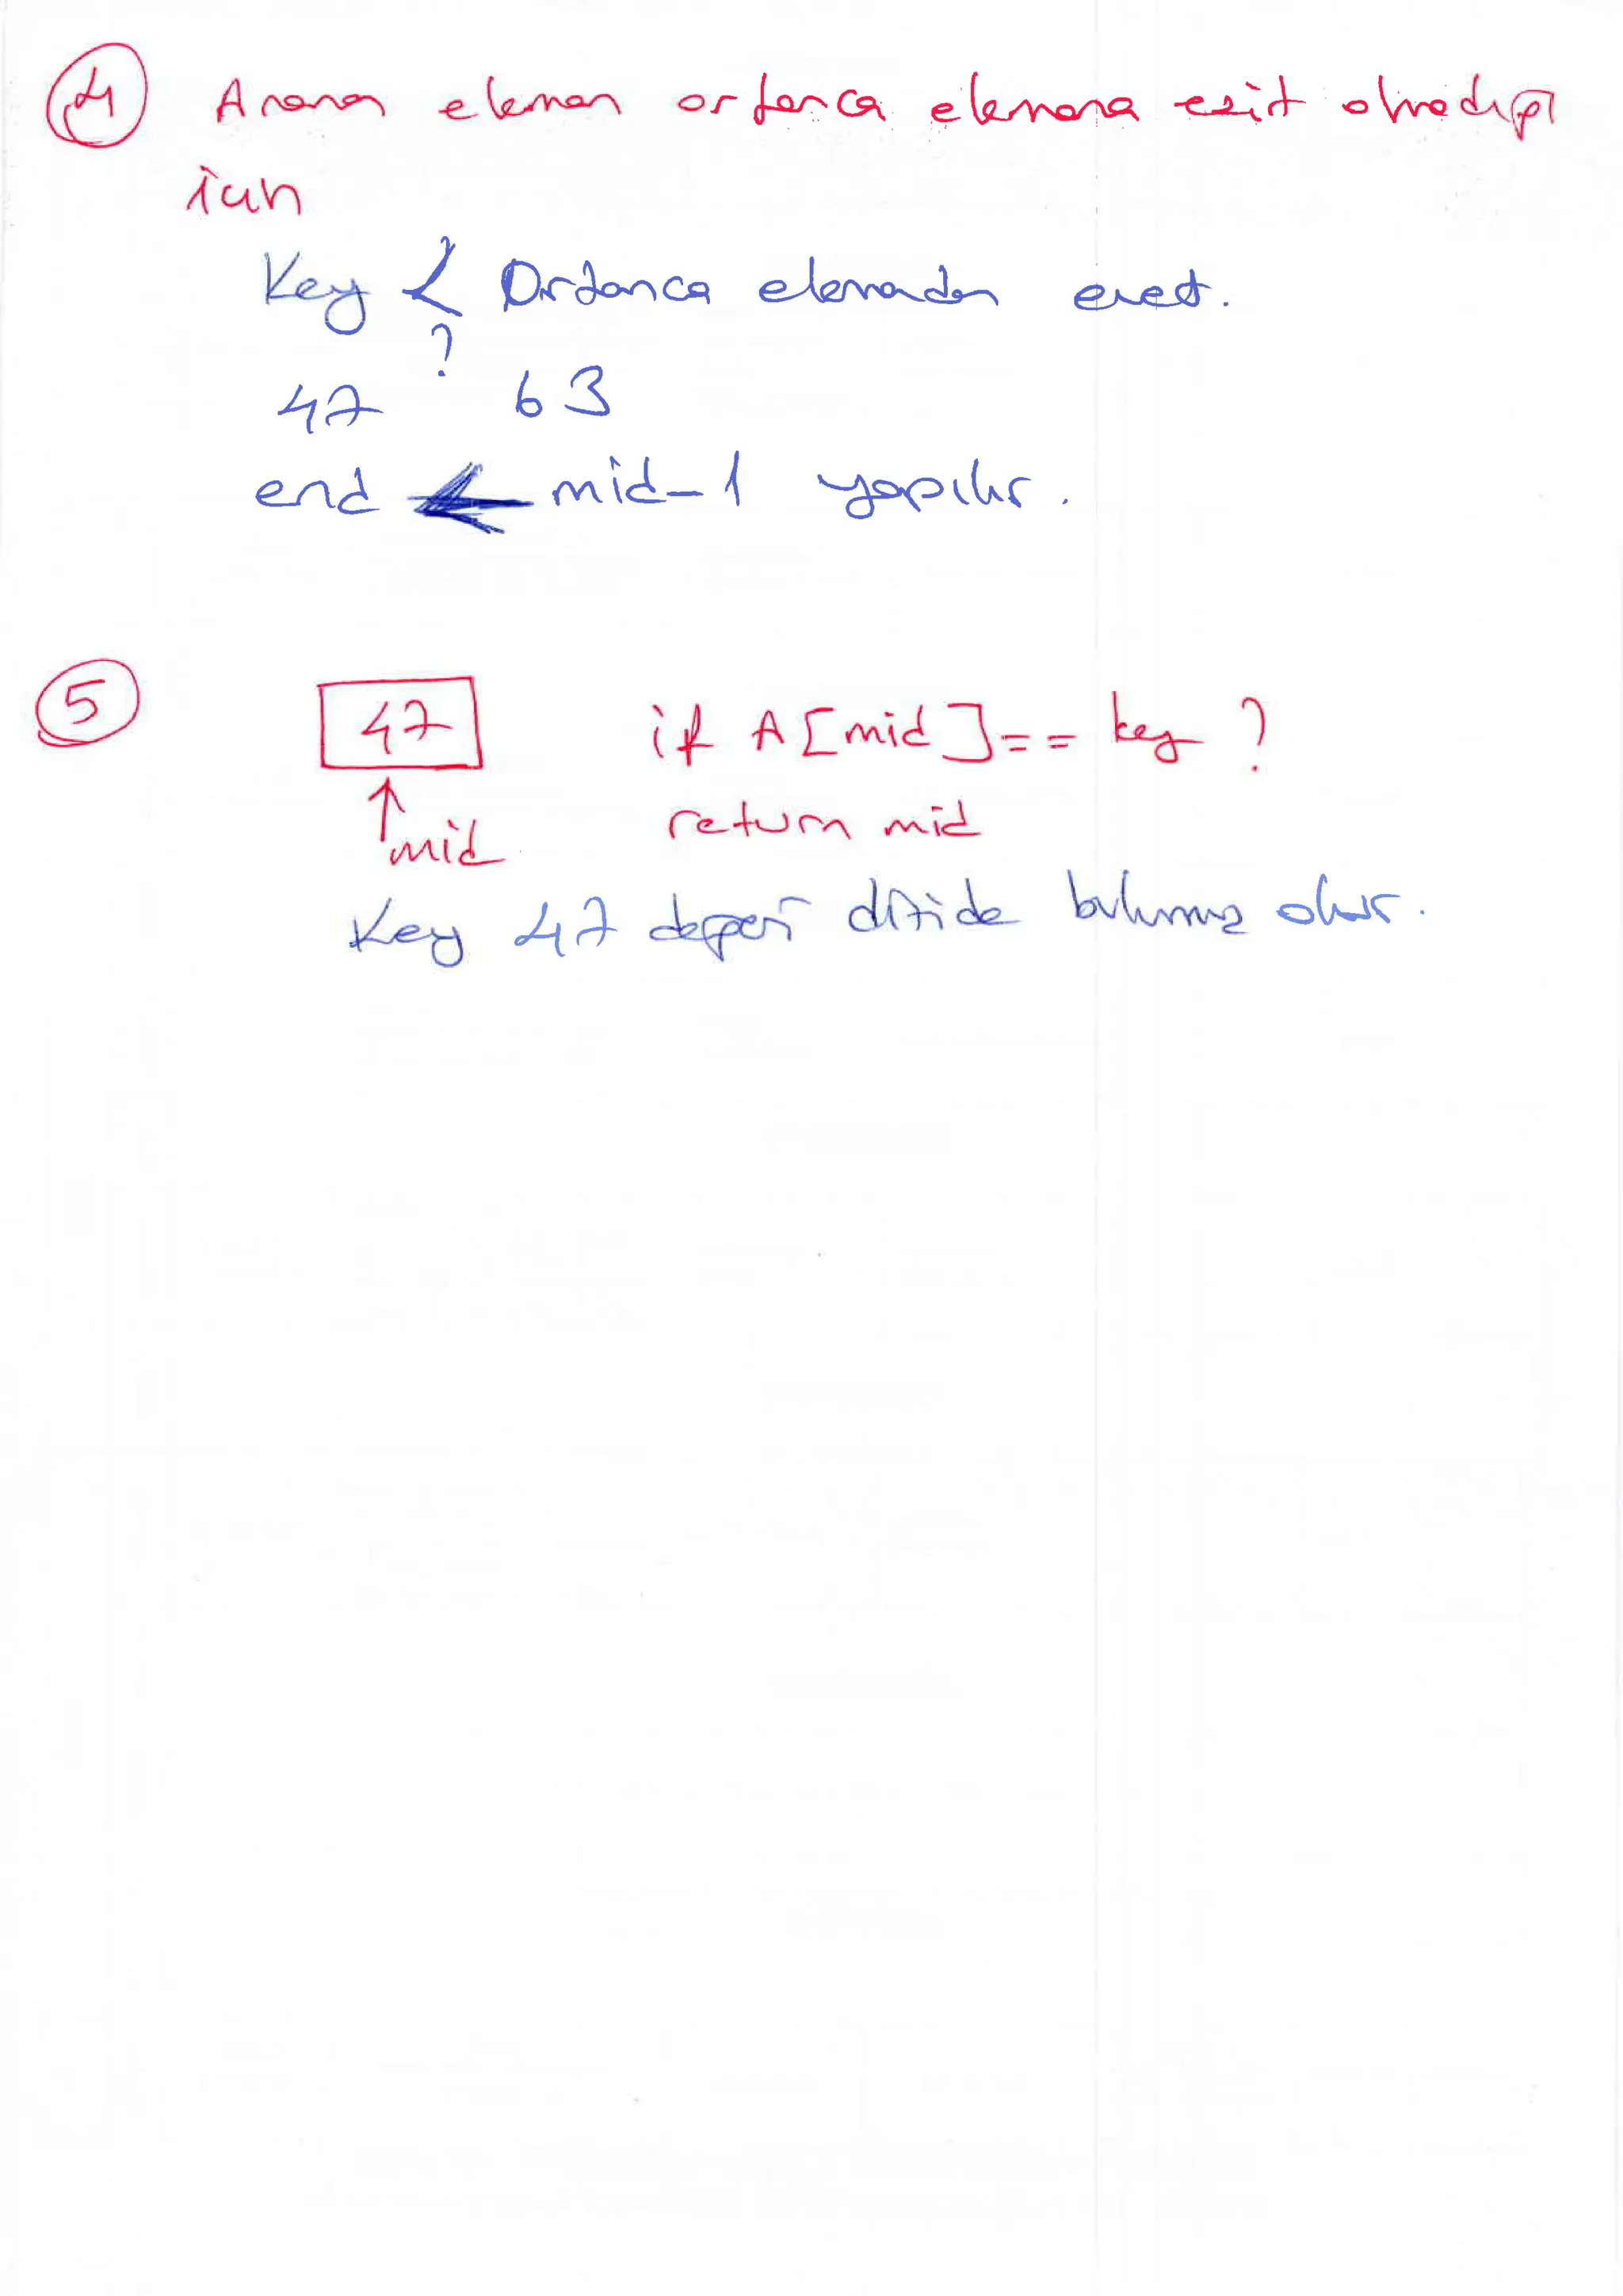 4 Aranan eleman ortanca elemana eşit olmadığı
için
Key < Ortanca elemandan evet.
?
47 63
end ← mid-1 yapılır.
5 47 if A[mid]== key ?
↑mid return mid
Key 47 değeri dizide bulunmuş olur.